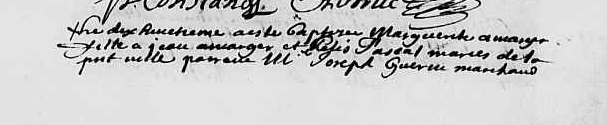 Constans Thomic
Le dix neufieme a este baptisee Marguerite amarger
fille a jean amarger et Pascal maries de la
pnt ville parrein Mr Joseph Guerin marchand